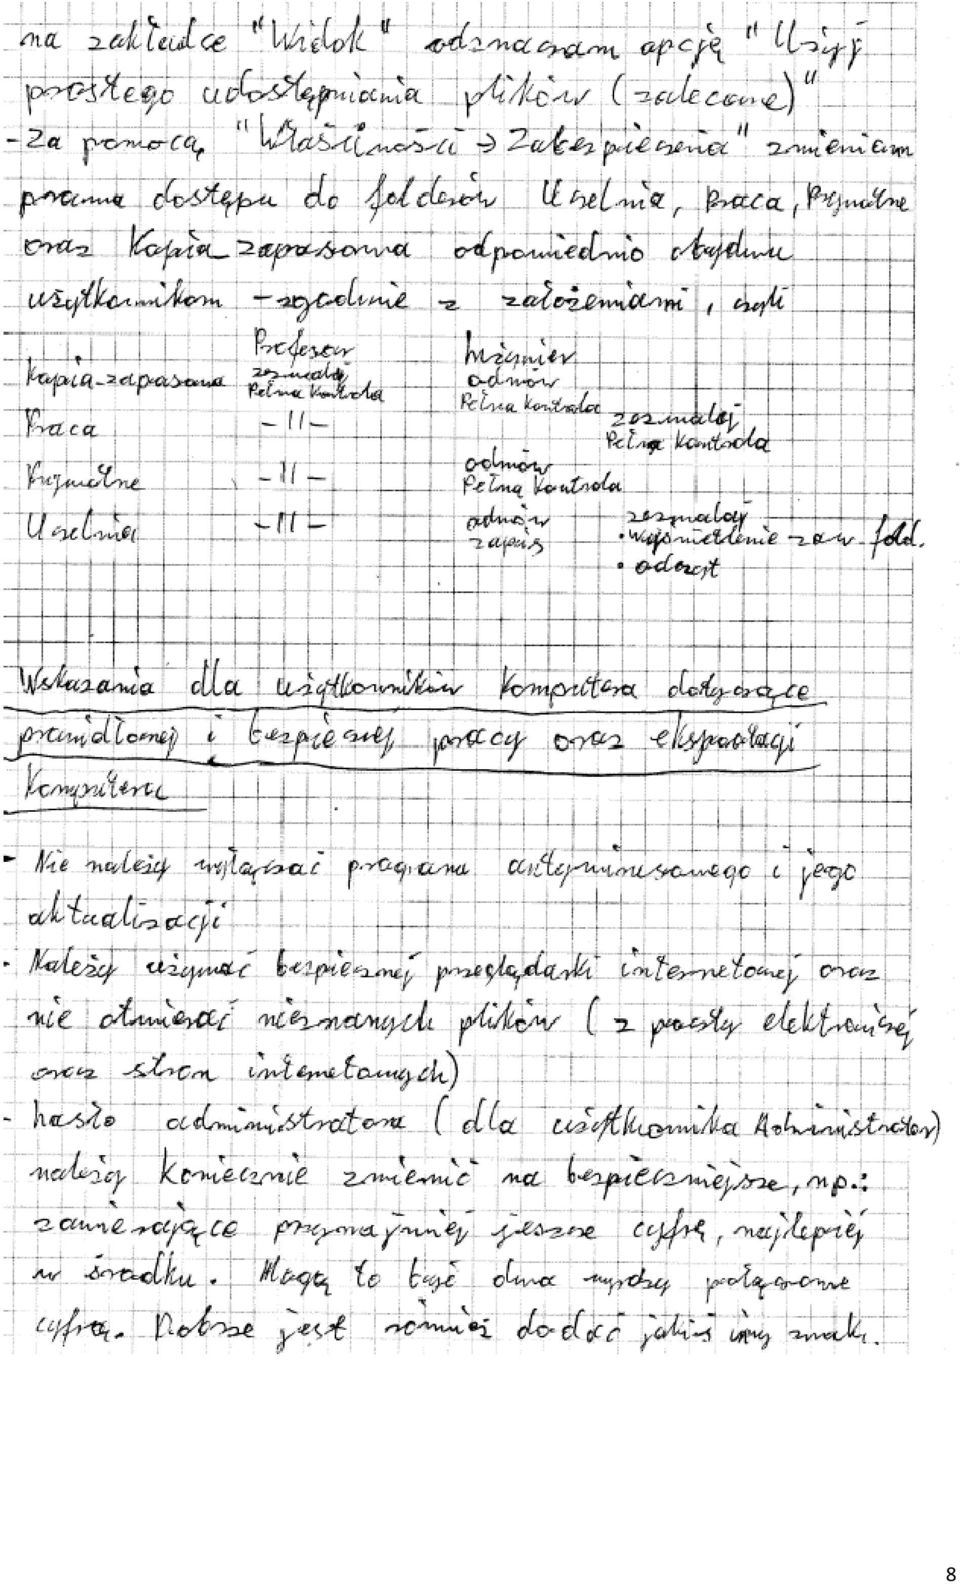 na zakładce "Widok" odznaczam opcję "Użyj
prostego udostępniania plików (zalecane)"
- Za pomocą "Właściwości → Zabezpieczenia" zmieniam
prawa dostępu do folderów Uczelnia, Praca, Prywatne
oraz Kopia zapasowa odpowiednio obydwu
użytkownikom - zgodnie z założeniami, czyli
Profesor Inżynier
Kopia-zapasowa zezwalaj Pełna kontrola odmów Pełna kontrola
Praca -||- zezwalaj Pełna kontrola
Prywatne -||- odmów Pełna kontrola
Uczelnia -||- odmów zapis zezwalaj
• wyświetlenie zaw. fold.
• odczyt
Wskazania dla użytkowników komputera dotyczące
prawidłowej i bezpiecznej pracy oraz eksploatacji
komputera
- Nie należy wyłączać programu antywirusowego i jego
aktualizacji
- Należy używać bezpiecznej przeglądarki internetowej oraz
nie otwierać nieznanych plików (z poczty elektronicznej
oraz stron internetowych)
- hasło administratora (dla użytkownika Administrator)
należy koniecznie zmienić na bezpieczniejsze, np.:
zawierające przynajmniej jeszcze cyfrę, najlepiej
w środku. Mogą to być dwa wyrazy połączone
cyfrą. Dobrze jest również dodać jakiś inny znak.
8